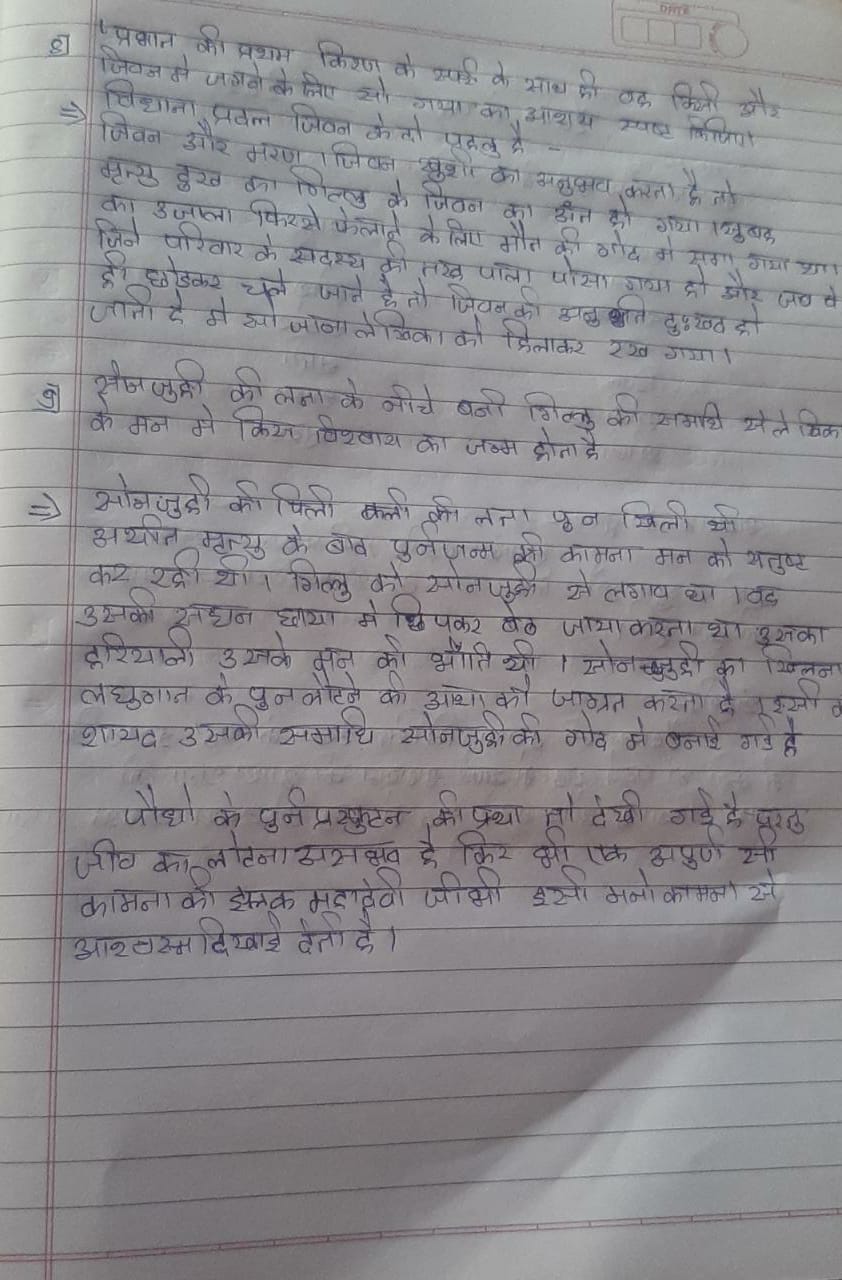 DATE
8] "प्रभात की प्रथम किरण के स्पर्श के साथ ही वह किसी और
जिवन मे जगने के लिए सो गया का आशय स्पष्ट किजिए।
⇒ विधाता प्रदत्त जिवन के दो पहलु है -
जिवन और मरण । जिवन खुशी का अनुभव करता है तो
मृत्यु दुख का गिल्लु के जिवन का अंत हो गया । सुबह
का उजाला फिरसे फेलाने के लिए मौत की गोद मे समा गया था।
जिने परिवार के सदस्य की तरह पाला पोसा गया हो और जब वे
ही छोडकर चले जाते है तो जिवन की अनुभुति दुःखद हो
जाती है मे सो जाना लेखिका को हिलाकर रख गया।
9] सोनजुही की लता के नीचे बनी गिल्लु की समाधि से लेखिक
के मन मे किस विश्वास का जन्म होता है
⇒ सोनजुही की पिली कली की लता पुन खिली थी
अर्थात मृत्यु के बाद पुर्नजन्म की कामना मन को संतुष्ट
कर रही थी । गिल्लु को सोनजुही से लगाव था । वह
उसकी सघन छाया मे छिपकर बेठ जाया करता था उसका
हरियाली उसके मन को भाँति थी । सोनजुही का खिलना
लघुगात के पुन लौटने की आशा को जाग्रत करता है । इसी
शायद उसकी समाधि सोनजुही की गोद मे बनाई गई है
पौधो के पुर्न प्रस्फुटन की प्रथा तो देखी गई है परंतु
जीव का लोटना असंभव है फिर भी एक अपुर्ण सी
कामना की झलक महादेवी जी भी इसी मनोकामना से
आश्वस्म दिखाई देती है।